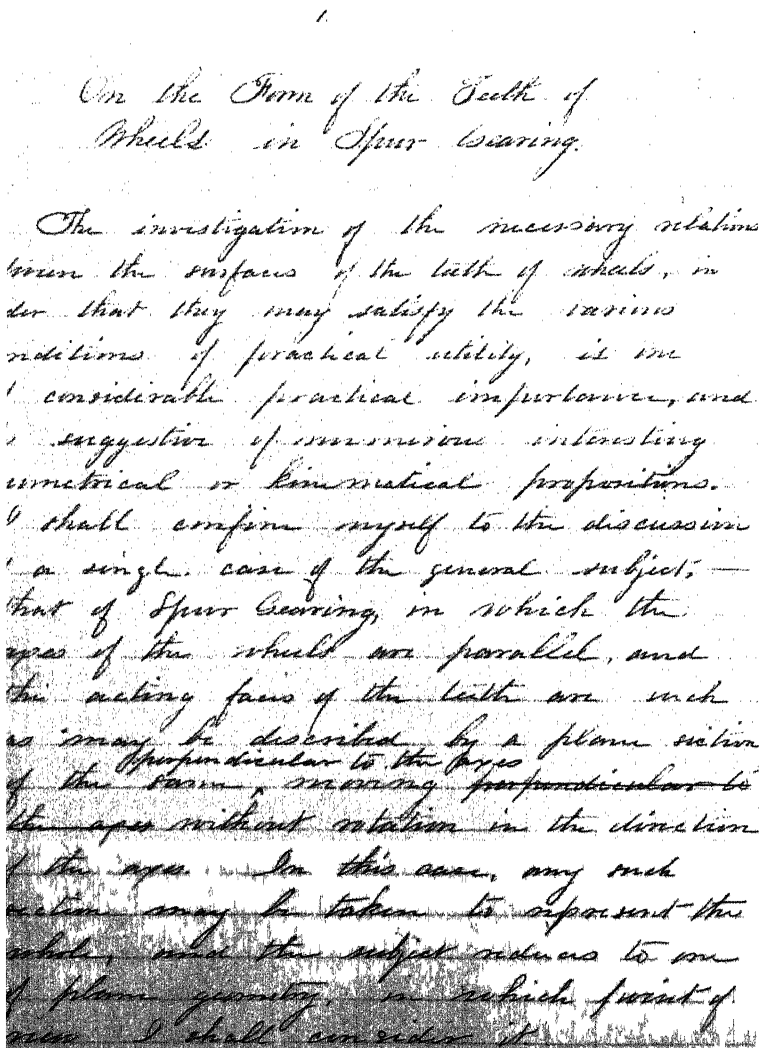 1.
On the Form of the Teeth of
Wheels in Spur Gearing.
The investigation of the necessary relations
tween the surfaces of the teeth of wheels, in
der that they may satisfy the various
nditions of practical utility, is one
f considerable practical importance, and
s suggestive of numerous interesting
ometrical or kinematical propositions.
I shall confine myself to the discussion
f a single case of the general subject, —
that of Spur Gearing, in which the
axes of the wheels are parallel, and
the acting faces of the teeth are such
as may be described by a plane section
perpendicular to the axes
of the same, moving perpendicular to
the axes without rotation in the direction
f the axes. In this case, any such
section may be taken to represent the
whole, and the subject reduces to one
of plane geometry, in which point of
view I shall consider it